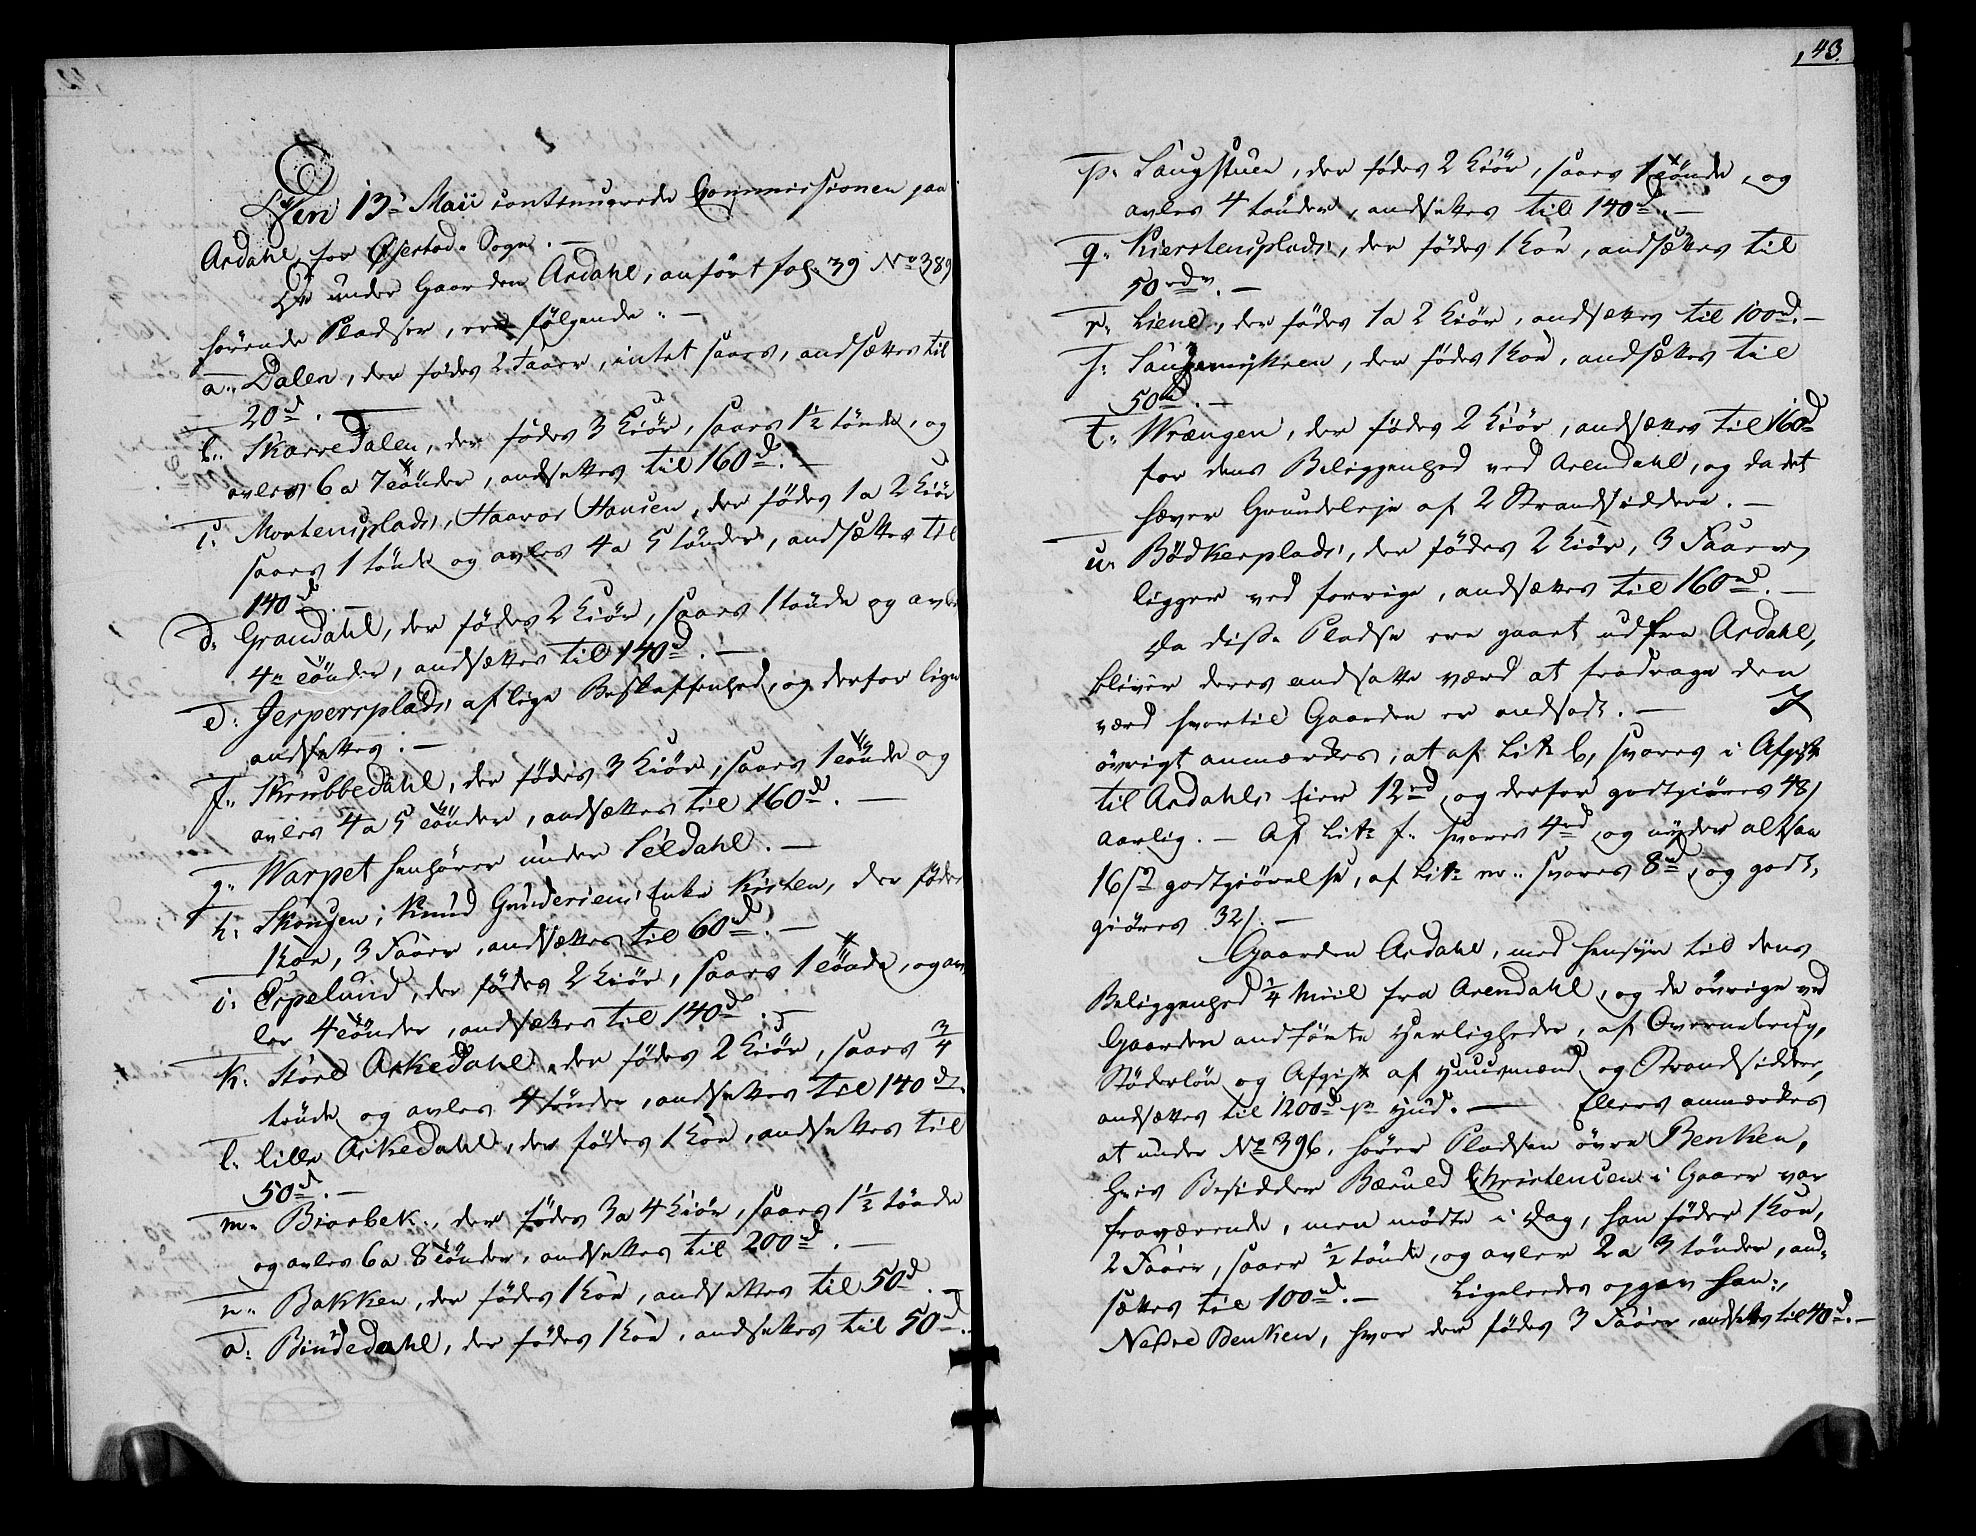 Den 13de Maii continuerede Commissionen paa
Ardahl, for Øjestad Sogn. —
De under Gaarden Ardahl, anført fol. 39 No 389
hørende Pladser, ere følgende: —
a. Dalen, der fødes 2 Faarr, intet saaes, andsættes til
20 rd. —
b. Skarredalen, der fødes 3 Kiör, saaes 1½ tönde, og
avles 6 a 7 tönder, andsættes til 160 rd. —
c. Mortensplads, Haavor Hansen, der födes 1 a 2 Kiör
saaes 1 tönde og avles 4 a 5 tönder, andsættes til
140 rd. —
d. Grandahl, der födes 2 Kiör, saaes 1 tönde og avles
4 tönder, andsættes til 140 rd. —
e. Jespersplads af lige Beskaffenhed, og derfor lige
andsættes. —
f. Skrubbedahl, der födes 3 Kiör, saaes 1 tönde og
avles 4 a 5 tönder, andsættes til 160 rd. —
g. Warpet henhörer under Seldahl. —
h. Skougen, Knud Gundersens Enke Kirsten, der föder
1 Koe, 3 Faarr, andsættes til 60 rd. —
i. Espelund, der födes 2 Kiör, saaes 1 tönde, og av
les 4 tönder, andsættes til 140 rd. —
k. Store Askedahl, der födes 2 Kiör, saaes ¾
tönde og avles 4 tönder, andsættes til 140 rd.
l. Lille Askedahl, der födes 1 Koe, andsættes til
50 rd. —
m. Biorbek, der födes 3 a 4 Kiör, saaes 1½ tönde
og avles 6 a 8 tönder, andsættes til 200 rd. —
n. Bakken, der födes 1 Koe, andsættes til 50 rd. —
o. Bindedahl, der födes 1 Koe, andsættes til 50 rd.
43.
p. Laugstuen, der födes 2 Kiör, saaes 1 tönde, og
avles 4 tönder, andsættes til 140 rd. —
q. Kierstensplads, der födes 1 Koe, andsættes til
50 rd. —
r. Liene, der födes 1 a 2 Kiör, andsættes til 100 rd. —
s. Langemyhren, der födes 1 Koe, andsættes til
50 rd. —
t. Wrængen, der födes 2 Kiör, andsættes til 160 rd
for dens Beliggenhed ved Arendahl, og da det
hæver Grundeleje af 2 Strandsiddere. —
u. Bödkerplads, der födes 2 Kiör, 3 Faarr,
ligger ved forrige, andsættes til 160 rd. —
Da disse Pladse ere gaaet ud fra Ardahl,
bliver deres andsatte værd at fradrage den
værd hvortil Gaarden er andsadt. — I
övrigt anmærkes, at af Litr b, svares i Afgift
til Ardahls Eier 12 rd, og derfor godtgiöres 48 s
aarlig. — Af Litr f. svares 4 rd, og nyder altsaa
16 s godtgiörelse, af Litr m. svares 8 rd, og godt,
giöres 32 s. —
Gaarden Ardahl, med hensyn til dens
Beliggenhed ¼ Miil fra Arendahl, og de övrige ved
Gaarden andförte Herligheder, af Qvernebrug,
Stöderlön og Afgift af Huusmænd og Strandsidder,
andsættes til 1200 rd pr Hud. — Ellers anmærkes
at under No 396. hörer Pladsen övre Benken,
hvis Besidder Bæruld Christensen i Gaar var
fraværende, men mödte i Dag, han föder 1 Koe,
2 Faarr, saaer ½ tönde, og avler 2 a 3 tönder, and-
sættes til 100 rd. — Ligeledes opgav han,
Nedre Benken, hvor der födes 3 Faarr, andsættes til 40 rd. —